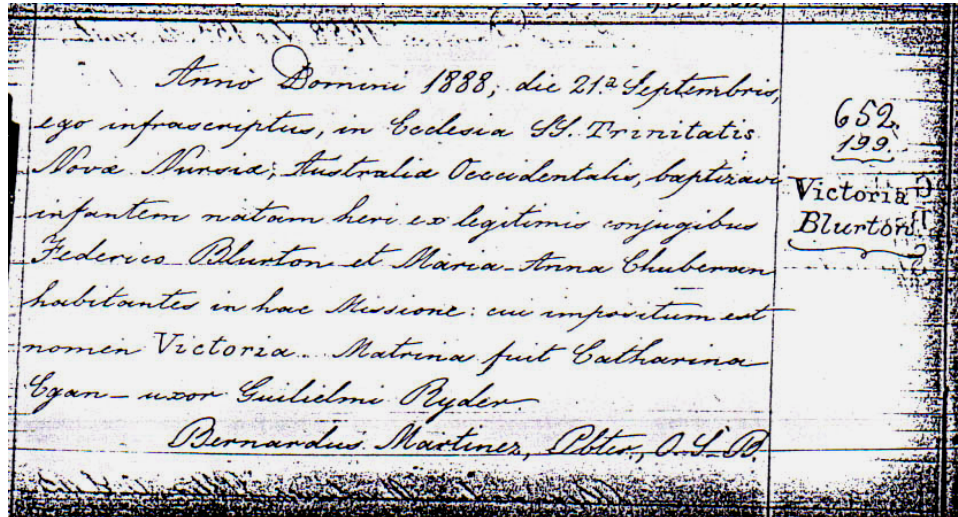 Anno Domini 1888, die 21ª Septembris,
ego infrascriptus, in Ecclesia SS. Trinitatis
Novæ Nursiæ, Australiæ Occidentalis, baptizavi
infantem natam heri ex legitimis conjugibus
Federico Blurton et Maria-Anna Chuberan
habitantes in hac Missione: cui impositum est
nomen Victoria. Matrina fuit Catharina
Egan - uxor Guilielmi Ryder.
Bernardus Martinez, Pbter, O.S.B.
652
199.
Victoria
Blurton.